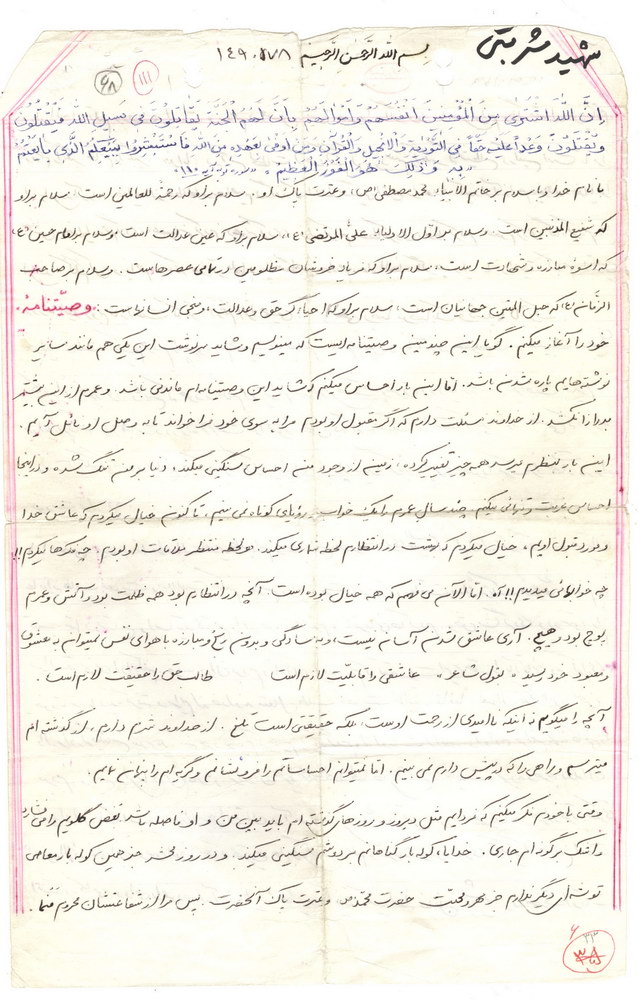 شهید شربتی
بسم الله الرحمن الرحیم ۱۴۹۰۵۷۸
۶۸ ۱۱۱
اِنَّ اللهَ اشْتَرى مِنَ الْمُؤمِنینَ اَنْفُسَهُمْ وَ اَمْوالَهُمْ بِاَنَّ لَهُمُ الْجَنَّةَ یُقاتِلُونَ فی سَبیلِ اللهِ فَیَقْتُلُونَ
وَ یُقْتَلُونَ وَعْداً عَلَیْهِ حَقّاً فِی التَّوْریةِ وَالْاِنْجیلِ وَالْقُرْآنِ وَ مَنْ اَوْفى بِعَهْدِهِ مِنَ اللهِ فَاسْتَبْشِرُوا بِبَیْعِکُمُ الَّذی بایَعْتُمْ
بِهِ وَ ذلِکَ هُوَ الْفَوْزُ الْعَظیمُ
با نام خدا و با سلام بر خاتم الانبیاء محمد مصطفی (ص) و عترت پاک او. سلام بر او که رحمة للعالمین است، سلام بر او
که شفیع المذنبین است. و سلام بر اوّل الاولیاء علی المرتضی (ع)، سلام بر او که عین عدالت است، و سلام بر امام حسین (ع)
که اسوه مبارزه و شهادت است، سلام بر او که فریاد خروشان مظلومین در تمامی عصرهاست. و سلام بر صاحب
الزمان (ع) که حبل المتین جهانیان است، سلام بر او که احیاگر حق و عدالت، و منجی انسانهاست: وصیّتنامه
خود را آغاز میکنم. گویا این چندمین وصیتنامه ایست که مینویسم و شاید سرنوشت این یکی هم مانند سایر
نوشته هایم پاره شدن باشد. امّا این بار احساس میکنم که شاید این وصیتنامه ام ماندنی باشد و عمرم از این بیشتر
بدرازا نکشد. از خداوند مسئلت دارم که اگر مقبول او بودم مرا به سوی خود فراخواند تا به وصل او نائل آیم.
این بار بنظرم میرسد همه چیز تغییر کرده، زمین از وجود من احساس سنگینی میکند، دنیا بر من تنگ شده و در اینجا
احساس غربت و تنهائی میکنم. چند سال عمرم را یک خواب و رؤیای کوتاه می بینم. تا کنون خیال میکردم که عاشق خدا
و مورد قبول اویم. خیال میکردم که بهشت در انتظارم لحظه شماری میکند. هر لحظه منتظر ملاقات او بودم. چه فکرها میکردم!!!
چه خوابهائی میدیدم!!! آه. امّا الآن می فهمم که همه خیال بوده است. آنچه در انتظارم بود همه ظلمت بود و آتش و عمرم
پوچ بود و هیچ. آری عاشق شدن آسان نیست، و به سادگی و بدون رنج و مبارزه با هوای نفس نمیتوان به معشوق
و معبود خود رسید. بقول شاعر، عاشقی را قابلیّت لازم است طالب حق را حقیقت لازم است.
آنچه را میگویم نه اینکه ناامیدی از رحمت اوست، بلکه حقیقتی است تلخ. از خداوند شرم دارم، از گذشته ام
میترسم و راهی را که در پیش دارم نمی بینم. امّا نمیتوانم احساساتم را فرو نشانم و گریه ام را پنهان نمایم.
وقتی با خودم فکر میکنم که فردایم مثل دیروز و روزهای گذشته ام باید بین من و او فاصله باشد بغض گلویم را می فشارد
و اشک بر گونه ام جاری. خدایا، کوله بار گناهانم بر دوشم سنگینی میکند. و در روز محشر جز همین کوله بار معاصی
توشه ای دیگر ندارم جز مهر و محبت حضرت محمّد (ص) و عترت پاک آنحضرت. پس مرا از شفاعتشان محروم مَنَما.